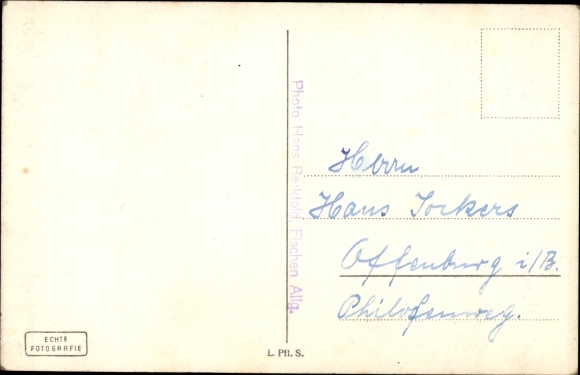 Photo Hans Berktold Fischen Allg.
Herrn
Hans Jockers
Offenburg i/B.
Philosofenweg.
ECHTE
FOTOGRAFIE
L. Pfl. S.